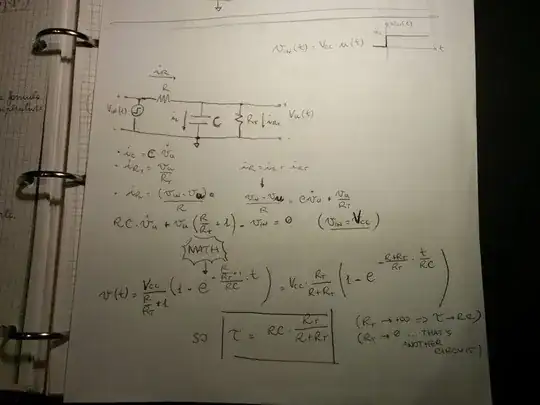 v_in(t) = V_cc u(t)
v_in(t)
t
i_R
R
+ +
v_in(t) i_c C R_T i_RT V_u(t)
- -
• i_c = C · v̇_u
• i_RT = v_u/R_T i_R = i_c + i_RT
• i_R = (v_in - v_u)/R (v_in - v_u)/R = C v̇_u + v_u/R_T
RC · v̇_u + v_u (R/R_T + 1) - v_in = 0 (v_in = V_cc)
MATH
v(t) = V_cc/(R/R_T + 1) (1 - e^(-(R/R_T + 1)/RC · t)) = V_cc · R_T/(R+R_T) (1 - e^(-(R+R_T)/R_T · t/RC))
SO τ = RC · R_T/(R+R_T)
(R_T → +∞ ⇒ τ → RC)
(R_T → 0 ... THAT'S
ANOTHER
CIRCUIT)